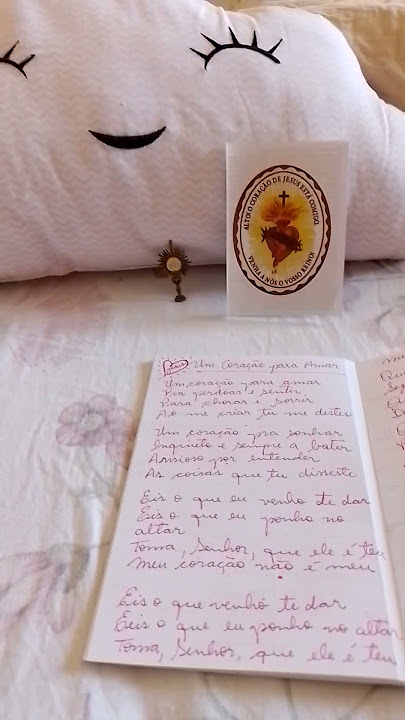 ALTO! O CORAÇÃO DE JESUS ESTÁ COMIGO.
VENHA A NÓS O VOSSO REINO!
Um Coração para Amar
Um coração para amar
Pra perdoar e sentir
Para chorar e sorrir
Ao me criar tu me destes
Um coração pra sonhar
Inquieto e sempre a bater
Ansioso por entender
As coisas que tu disseste
Eis o que eu venho te dar
Eis o que eu ponho no
altar
Toma, Senhor, que ele é teu
Meu coração não é meu
Eis o que venho te dar
Eeis o que eu ponho no altar
Toma, Senhor, que ele é teu